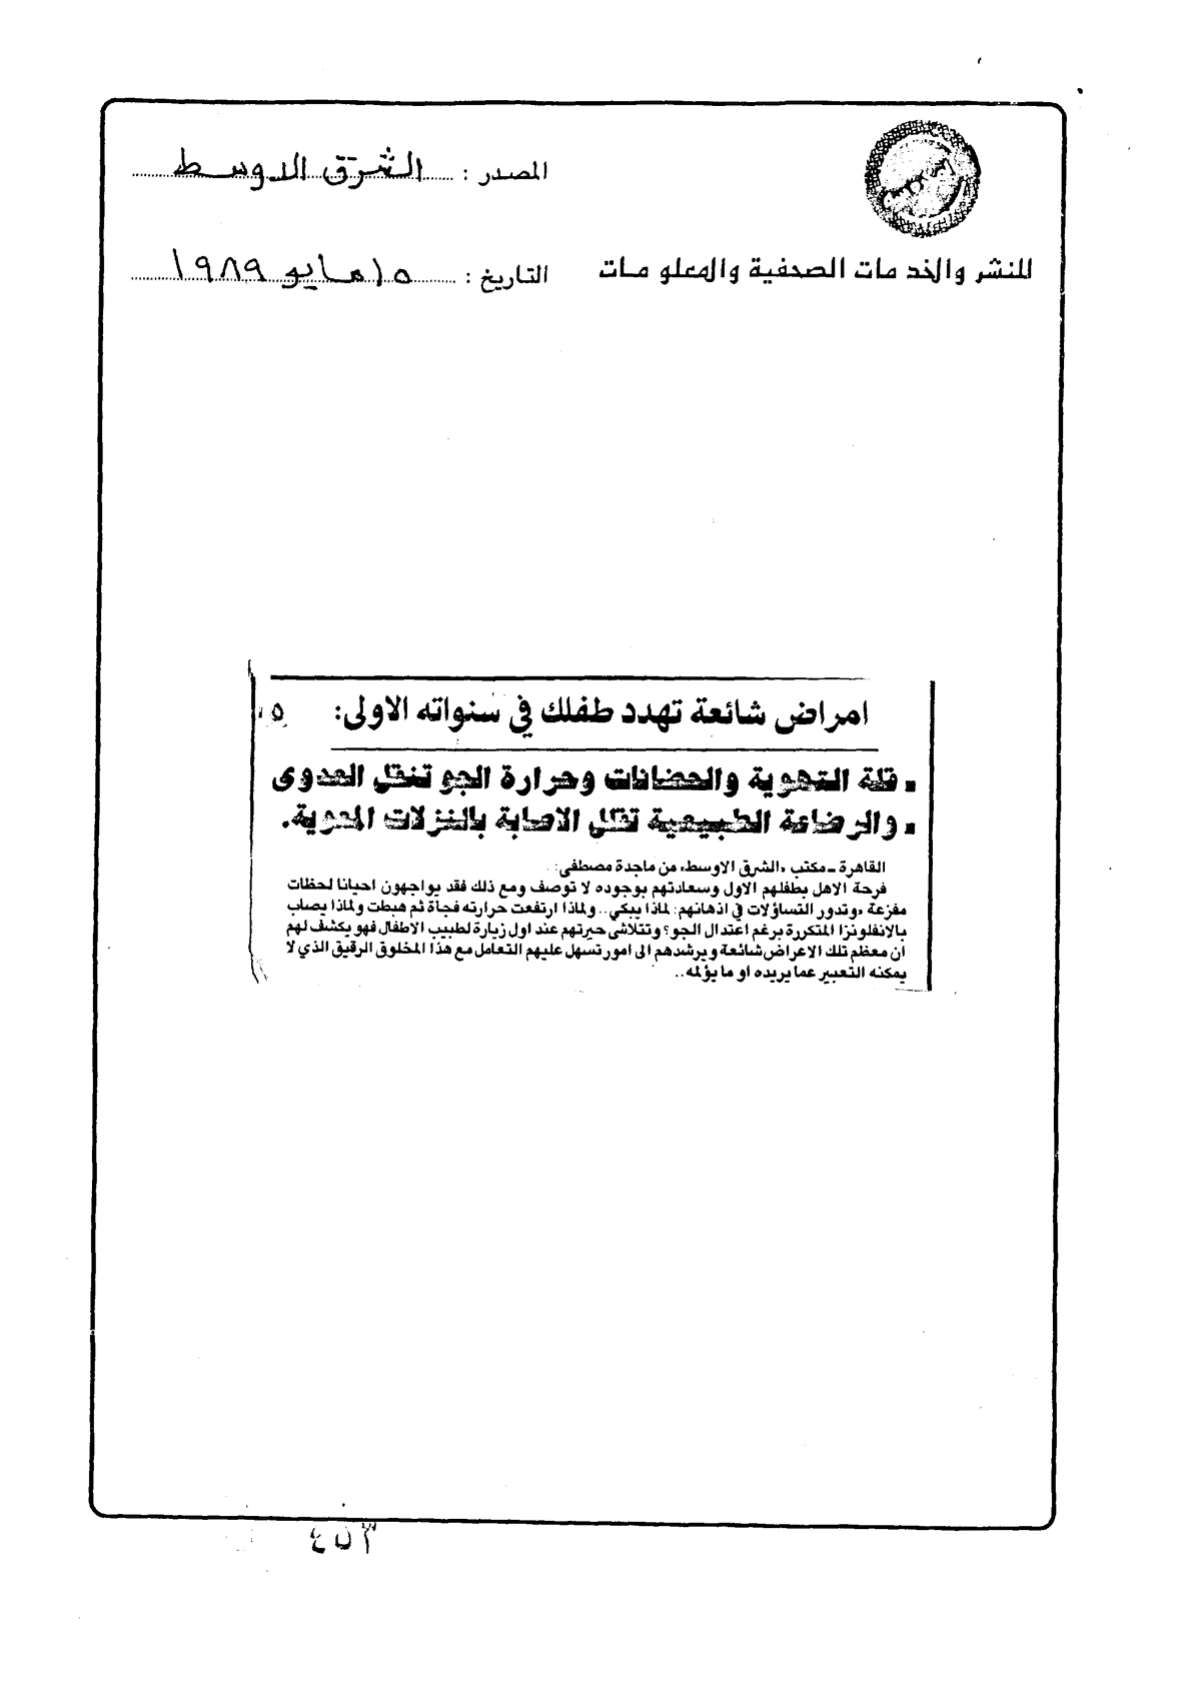 المصدر : الشرق الاوسط
للنشر والخدمات الصحفية والمعلومات
التاريخ : ١٥ مايو ١٩٨٩
امراض شائعة تهدد طفلك في سنواته الاولى:
▪ قلة التهوية والحضانات وحرارة الجو تنقل العدوى
▪ والرضاعة الطبيعية تقلل الاصابة بالنزلات المعوية.
القاهرة - مكتب «الشرق الاوسط» من ماجدة مصطفى:
فرحة الاهل بطفلهم الاول وسعادتهم بوجوده لا توصف ومع ذلك فقد يواجهون احيانا لحظات
مفزعة، وتدور التساؤلات في اذهانهم: لماذا يبكي.. ولماذا ارتفعت حرارته فجأة ثم هبطت ولماذا يصاب
بالانفلونزا المتكررة برغم اعتدال الجو؟ وتتلاشى حيرتهم عند اول زيارة لطبيب الاطفال فهو يكشف لهم
ان معظم تلك الاعراض شائعة ويرشدهم الى امور تسهل عليهم التعامل مع هذا المخلوق الرقيق الذي لا
يمكنه التعبير عما يريده او ما يؤلمه..